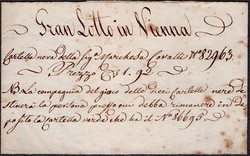 Gran Lotto in Vienna
Cartella nera della Sig.ª Marchesa Cavalli N.º 82963.
Prezzo 1.92
NB La compagnia del gioco delle dieci Cartelle nere di
Minerà la persona presso cui debba rimanere in De
posito la Cartella verde che ha il N.º 36695